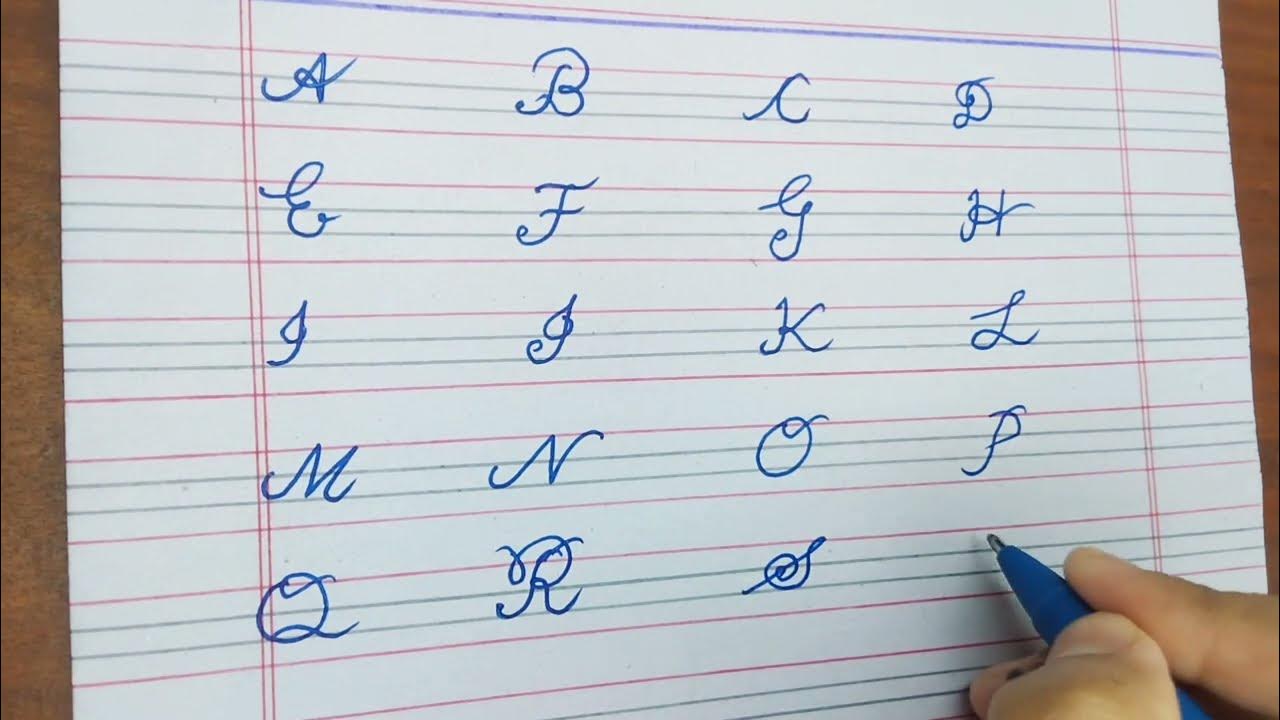 A B C D
E F G H
I J K L
M N O P
Q R S